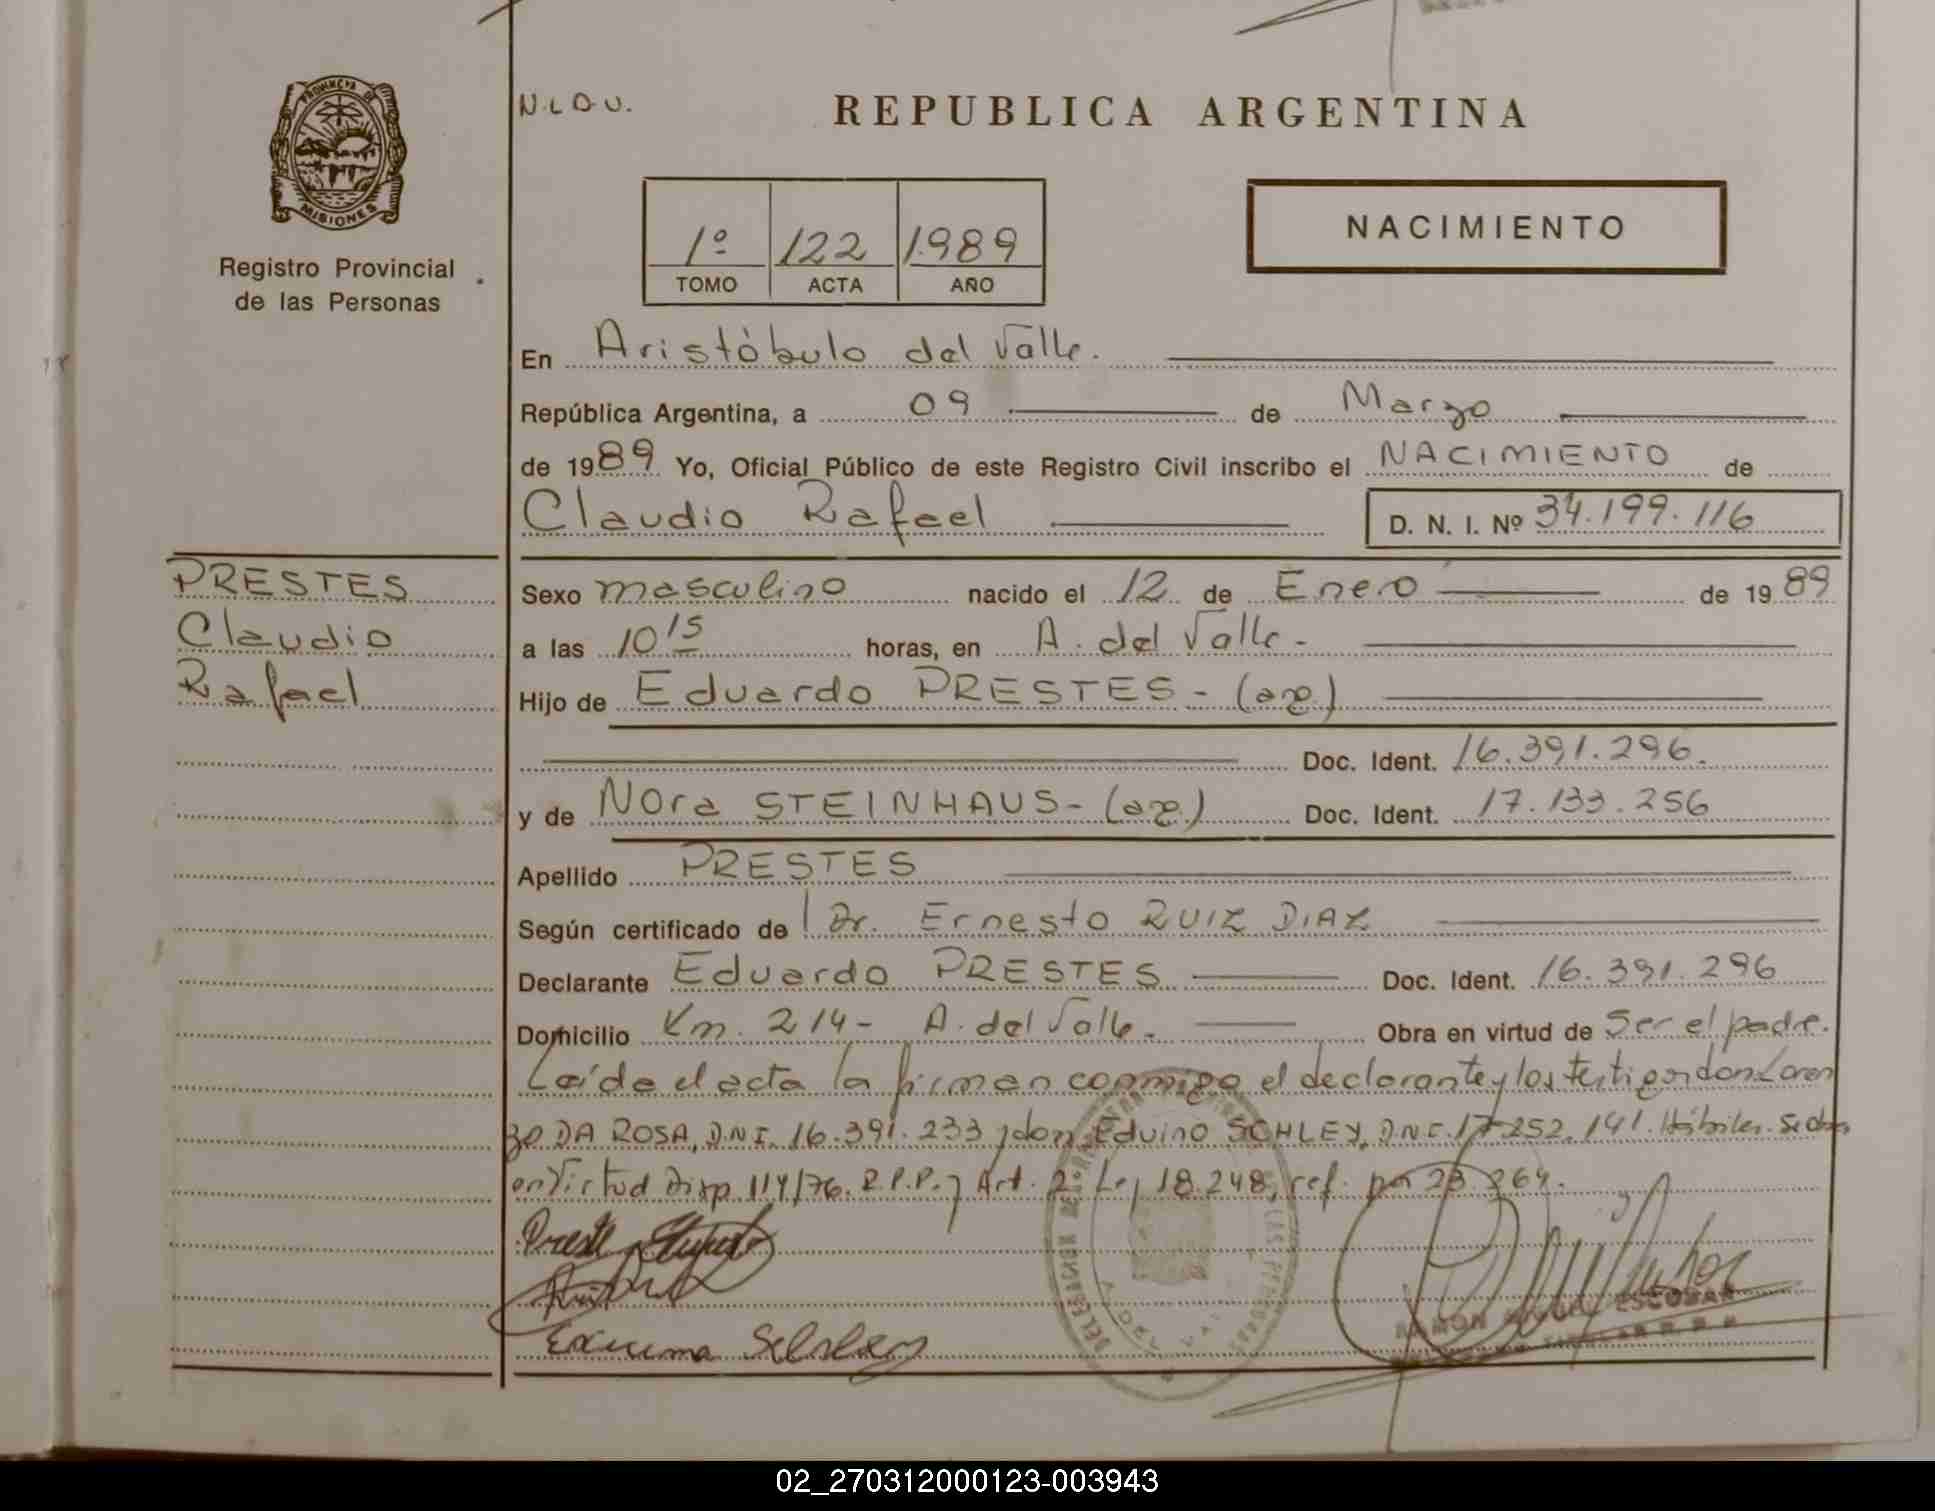 PROVINCIA DE
MISIONES
Registro Provincial
de las Personas
N.L.O.U.
REPUBLICA ARGENTINA
1º 122 1989
TOMO ACTA AÑO
NACIMIENTO
En Aristóbulo del Valle.
República Argentina, a 09 de Marzo
de 1989 Yo, Oficial Público de este Registro Civil inscribo el NACIMIENTO de
Claudio Rafael D. N. I. Nº 34.199.116
PRESTES
Claudio
Rafael
Sexo masculino nacido el 12 de Enero de 1989
a las 10 15 horas, en A. del Valle-
Hijo de Eduardo PRESTES-(ag.)
Doc. Ident. 16.391.296.
y de Nora STEINHAUS-(ag.) Doc. Ident. 17.133.256
Apellido PRESTES
Según certificado de Dr. Ernesto RUIZ DIAZ
Declarante Eduardo PRESTES Doc. Ident. 16.391.296
Domicilio Km. 214- A. del Valle- Obra en virtud de Ser el padre.
Leída el acta la firman conmigo el declarante y los testigos don Loren
zo DA ROSA, D.N.I. 16.391.233 y don Eduino SCHLEY, D.N.I. 17.252.141. Hábiles.
en Virtud Disp 114/76. R.P.P. y Art. 2 Ley 18.248, ref. por 23 264.
DELEGACION DE LAS PERSONAS
A. DEL VALLE
RAMON ESCOBAR
TITULAR
02_270312000123-003943